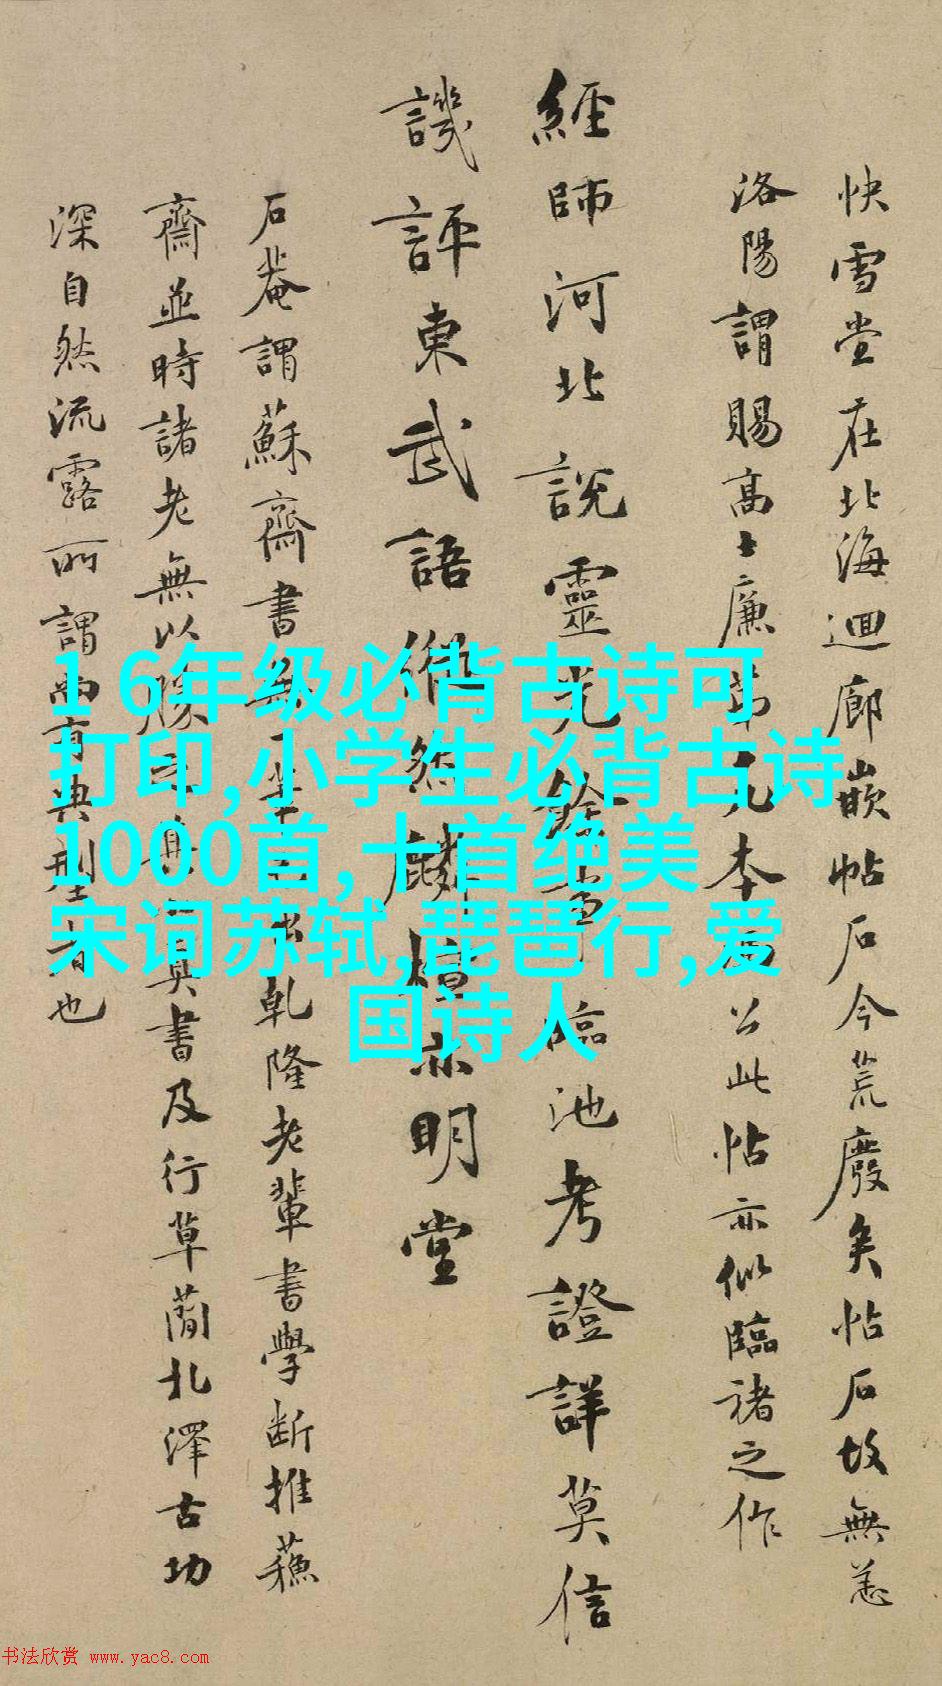 快雪堂在北海迴廊嵌帖石今荒廢矣帖石故無恙
洛陽謂賜高士廉第九本
公此帖亦似臨諸之作
經師河北說靈光
臨池考證詳莫信
譏評東武語
然麟
亦明堂
石菴謂蘇齋書無一筆
乾隆老輩書學斷推蘇
齋並時諸老無以勝
書及行草蘭北澤古功
深自然流露所謂尚有典型者也
1 6年级必背古诗可
打印,小学生必背古诗
1000首,十首绝美
宋词苏轼,琵琶行,爱
国诗人
书法欣赏 www.yac8.com